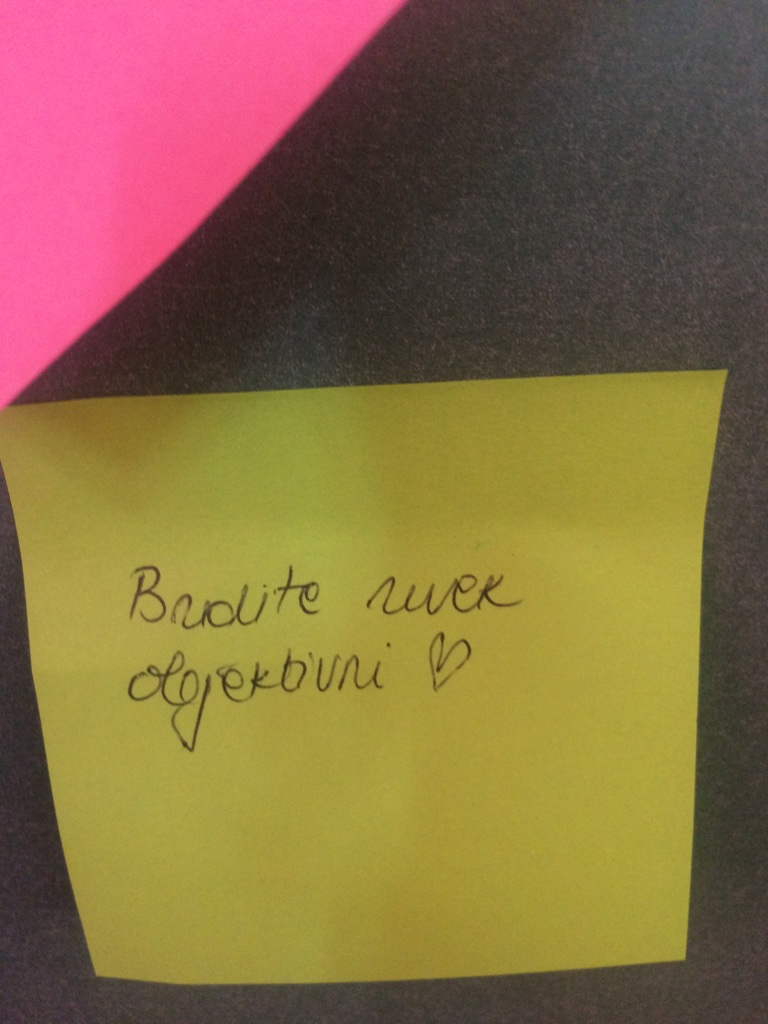 Budite uvek
objektivni ♡